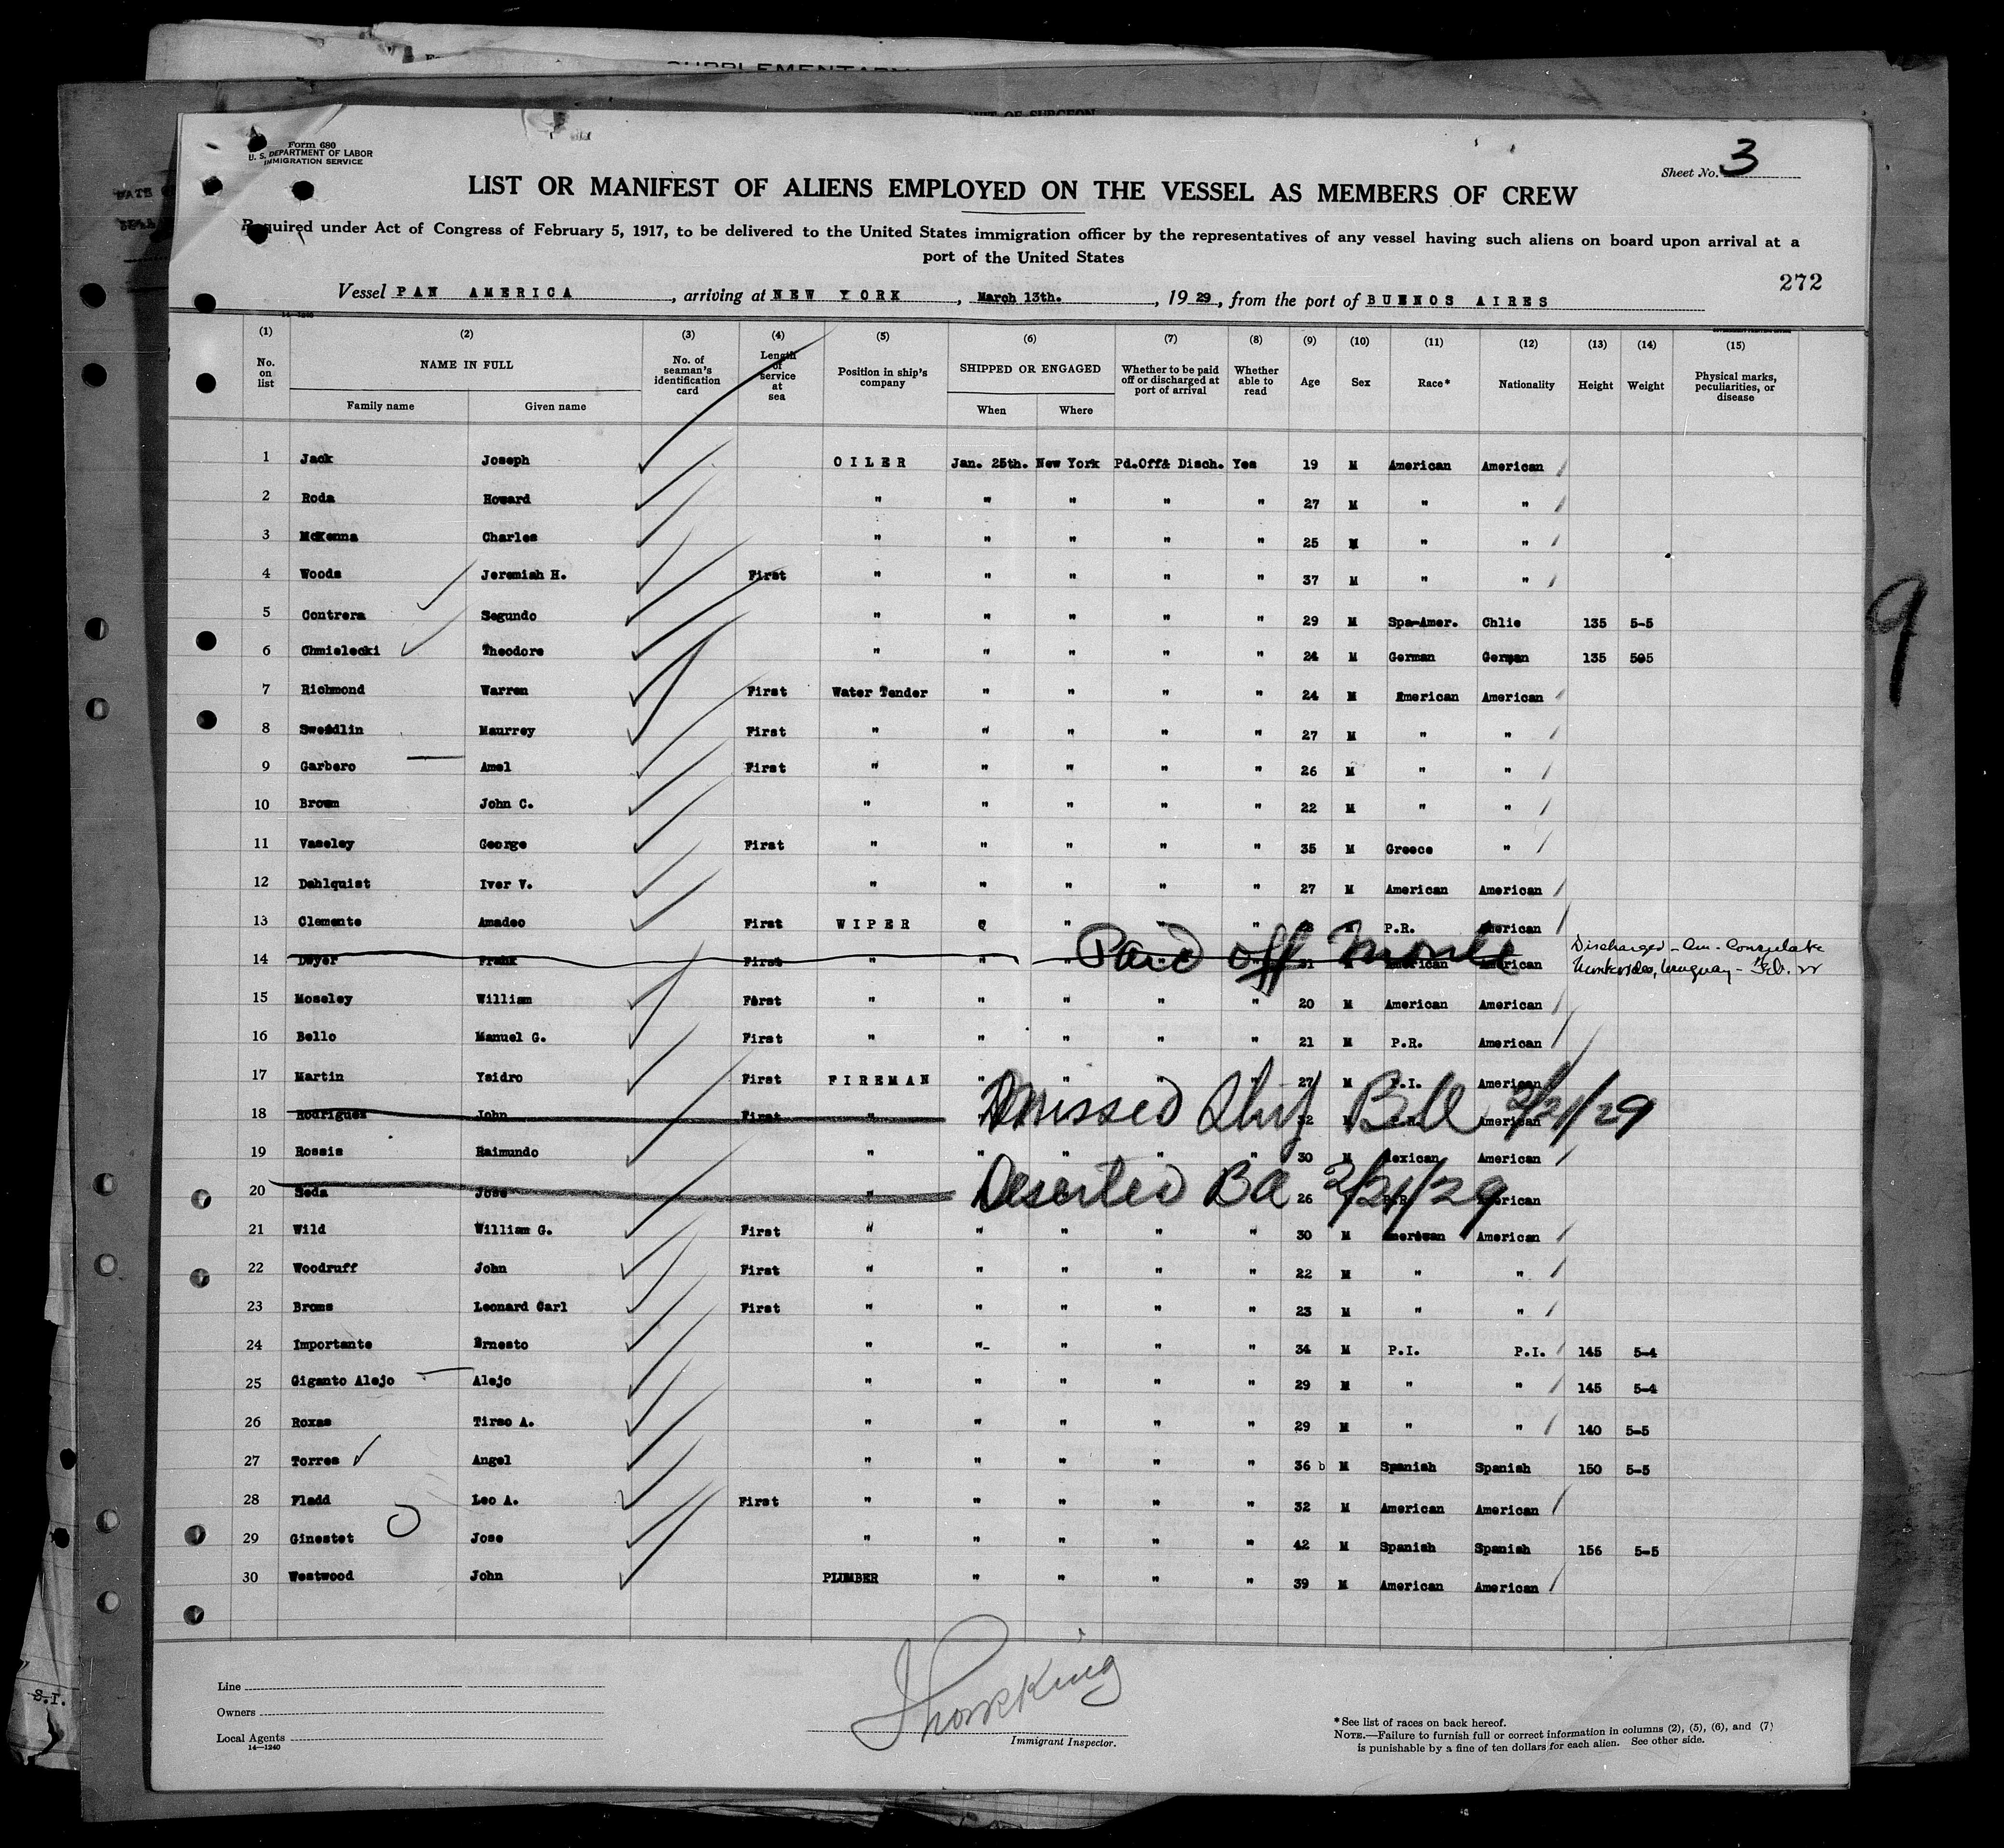 SUPPLEMENTARY
Form 680
U. S. DEPARTMENT OF LABOR
IMMIGRATION SERVICE
Sheet No. 3
LIST OR MANIFEST OF ALIENS EMPLOYED ON THE VESSEL AS MEMBERS OF CREW
Required under Act of Congress of February 5, 1917, to be delivered to the United States immigration officer by the representatives of any vessel having such aliens on board upon arrival at a
port of the United States
272
Vessel PAN AMERICA, arriving at NEW YORK, March 13th., 1929, from the port of BUENOS AIRES
(1) (2) (3) (4) (5) (6) (7) (8) (9) (10) (11) (12) (13) (14) (15)
No. on list NAME IN FULL Family name Given name No. of seaman's identification card Length of service at sea Position in ship's company SHIPPED OR ENGAGED When Where Whether to be paid off or discharged at port of arrival Whether able to read Age Sex Race* Nationality Height Weight Physical marks, peculiarities, or disease
1 Jack Joseph OILER Jan. 25th. New York Pd.Off& Disch. Yes 19 M American American
2 Roda Howard " " " " " 27 M " "
3 McKenna Charles " " " " " 25 M " "
4 Woods Jeremiah H. First " " " " " 37 M " "
5 Contrera Segundo " " " " " 29 M Spa-Amer. Chlie 135 5-5
6 Chmielecki Theodore " " " " " 24 M German German 135 505
7 Richmond Warren First Water Tender " " " " 24 M American American
8 Swedlin Maurrey First " " " " " 27 M " "
9 Garbero Amel First " " " " " 26 M " "
10 Brown John C. " " " " " 22 M " "
11 Vaseley George First " " " " " 35 M Greece "
12 Dahlquist Iver V. " " " " " 27 M American American
13 Clemente Amadeo First WIPER " " " " M P.R. American
14 Dwyer Frank First " " " Paid off Monte American American Discharged - Am. Consulate
Montevideo, Uruguay - Feb. 22
15 Moseley William First " " " " " 20 M American American
16 Bello Manuel G. First " " " " " 21 M P.R. American
17 Martin Ysidro First FIREMAN " " " " 27 M P.I. American
18 Rodriguez John First " Missed Ship 2/21/29 American
19 Rossis Raimundo " " " " " 30 M Mexican American
20 Seda Jose " Deserted BA 26 2/21/29 American
21 Wild William G. First " " " " " 30 M American American
22 Woodruff John First " " " " " 22 M " "
23 Broms Leonard Carl First " " " " " 23 M " "
24 Importante Ernesto " " " " " 34 M P.I. P.I. 145 5-4
25 Giganto Alejo Alejo " " " " " 29 M " " 145 5-4
26 Roxas Tirso A. " " " " " 29 M " " 140 5-5
27 Torres Angel " " " " " 36 b M Spanish Spanish 150 5-5
28 Fladd Leo A. First " " " " " 32 M American American
29 Ginestet Jose " " " " " 42 M Spanish Spanish 156 5-5
30 Westwood John PLUMBER " " " " 39 M American American
9
Line
Owners
Local Agents
14—1240
Immigrant Inspector.
*See list of races on back hereof.
NOTE.—Failure to furnish full or correct information in columns (2), (5), (6), and (7)
is punishable by a fine of ten dollars for each alien. See other side.
S.I.